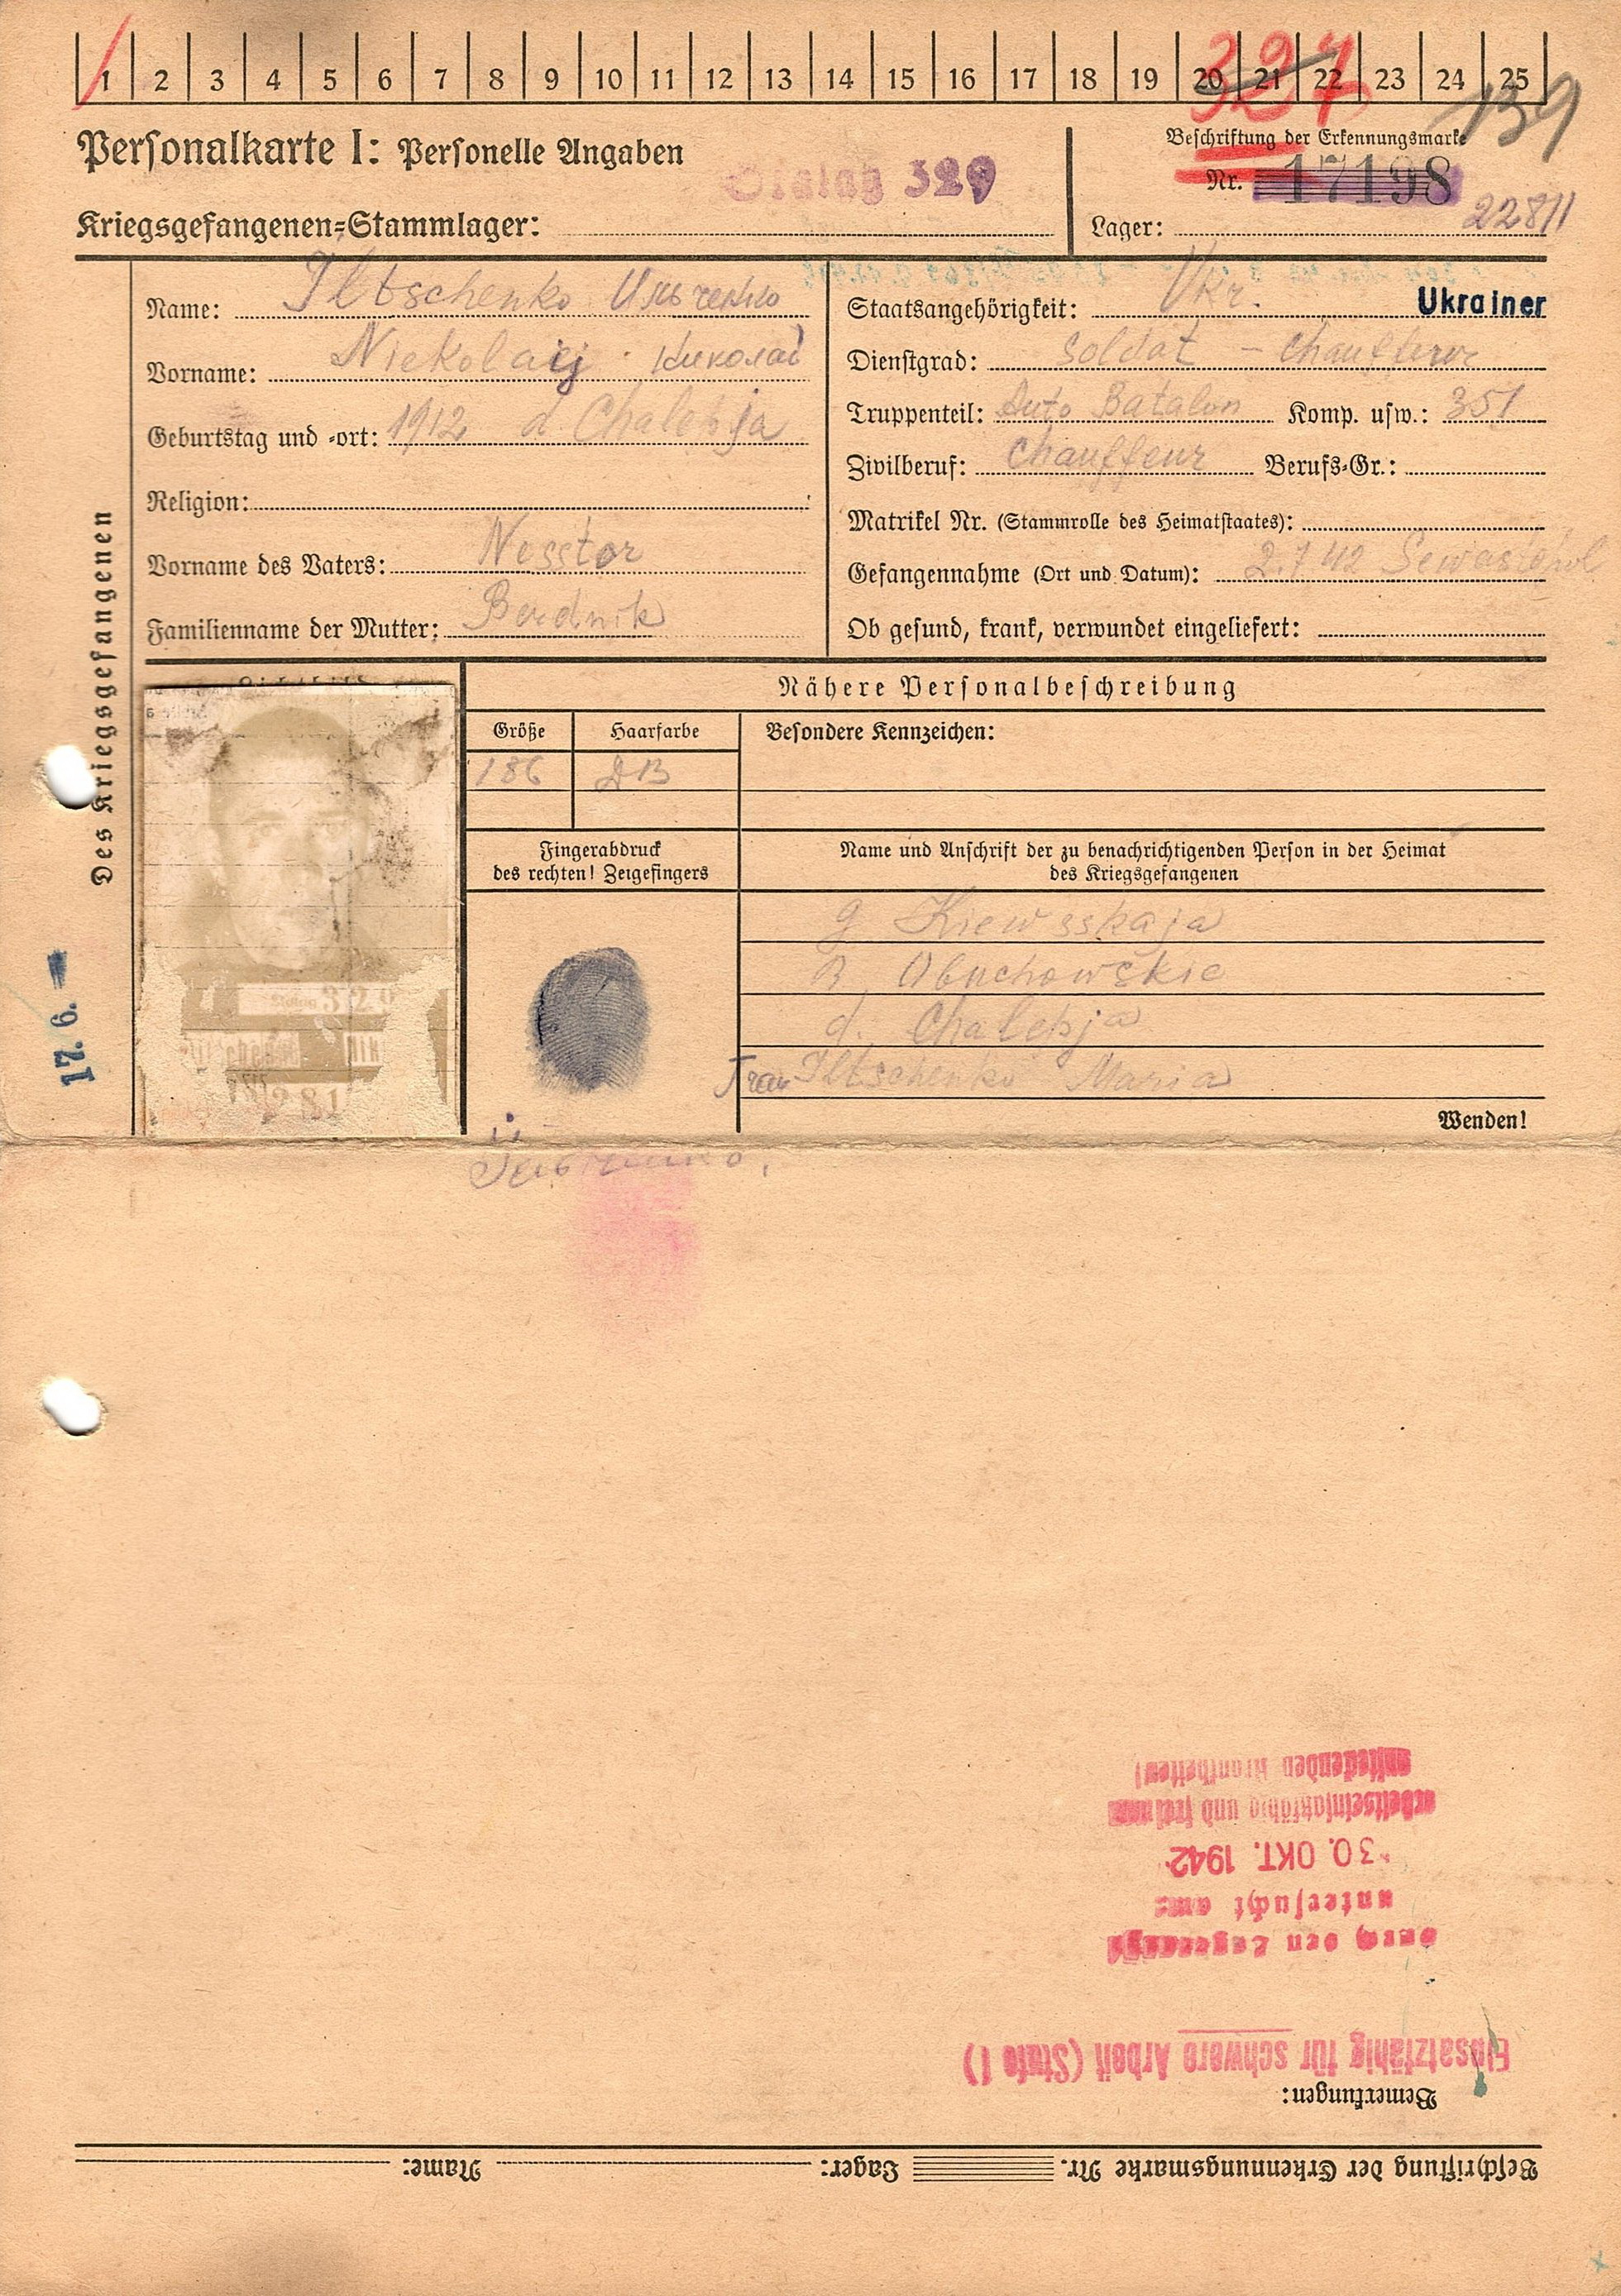 1 2 3 4 5 6 7 8 9 10 11 12 13 14 15 16 17 18 19 20 21 22 23 24 25
327
139
Personalkarte I: Personelle Angaben
Stalag 329
Beschriftung der Erkennungsmarke
Nr. 17198
22811
Kriegsgefangenen-Stammlager:
Lager:
Des Kriegsgefangenen
Name: Iltschenko Ильченко
Vorname: Niekolaij Николай
Geburtstag und -ort: 1912 d. Chalepja
Religion:
Vorname des Vaters: Nesstor
Familienname der Mutter: Berdnik
Staatsangehörigkeit: Ukr. Ukrainer
Dienstgrad: Soldat – Chauffeur
Truppenteil: Auto Batalon Komp. usw.: 351
Zivilberuf: Chauffeur Berufs-Gr.:
Matrikel Nr. (Stammrolle des Heimatstaates):
Gefangennahme (Ort und Datum): 2.7.42 Sewastopol
Ob gesund, krank, verwundet eingeliefert:
Lichtbild
Nähere Personalbeschreibung
Größe Haarfarbe Besondere Kennzeichen:
186 DB
Fingerabdruck
des rechten! Zeigefingers
Name und Anschrift der zu benachrichtigenden Person in der Heimat
des Kriegsgefangenen
g Kiewsskaja
R. Obuchowskie
d. Chalepja
Frau Iltschenko Maria
Wenden!
17. 6.
Stalag 329
Beschriftung der Erkennungsmarke Nr. Lager: Name:
Bemerkungen:
Einsatzfähig für schwere Arbeit (Stufe I)
durch den Lagerarzt
untersucht am:
30. OKT. 1942
arbeitseinsatzfähig und frei von
ansteckenden Krankheiten!